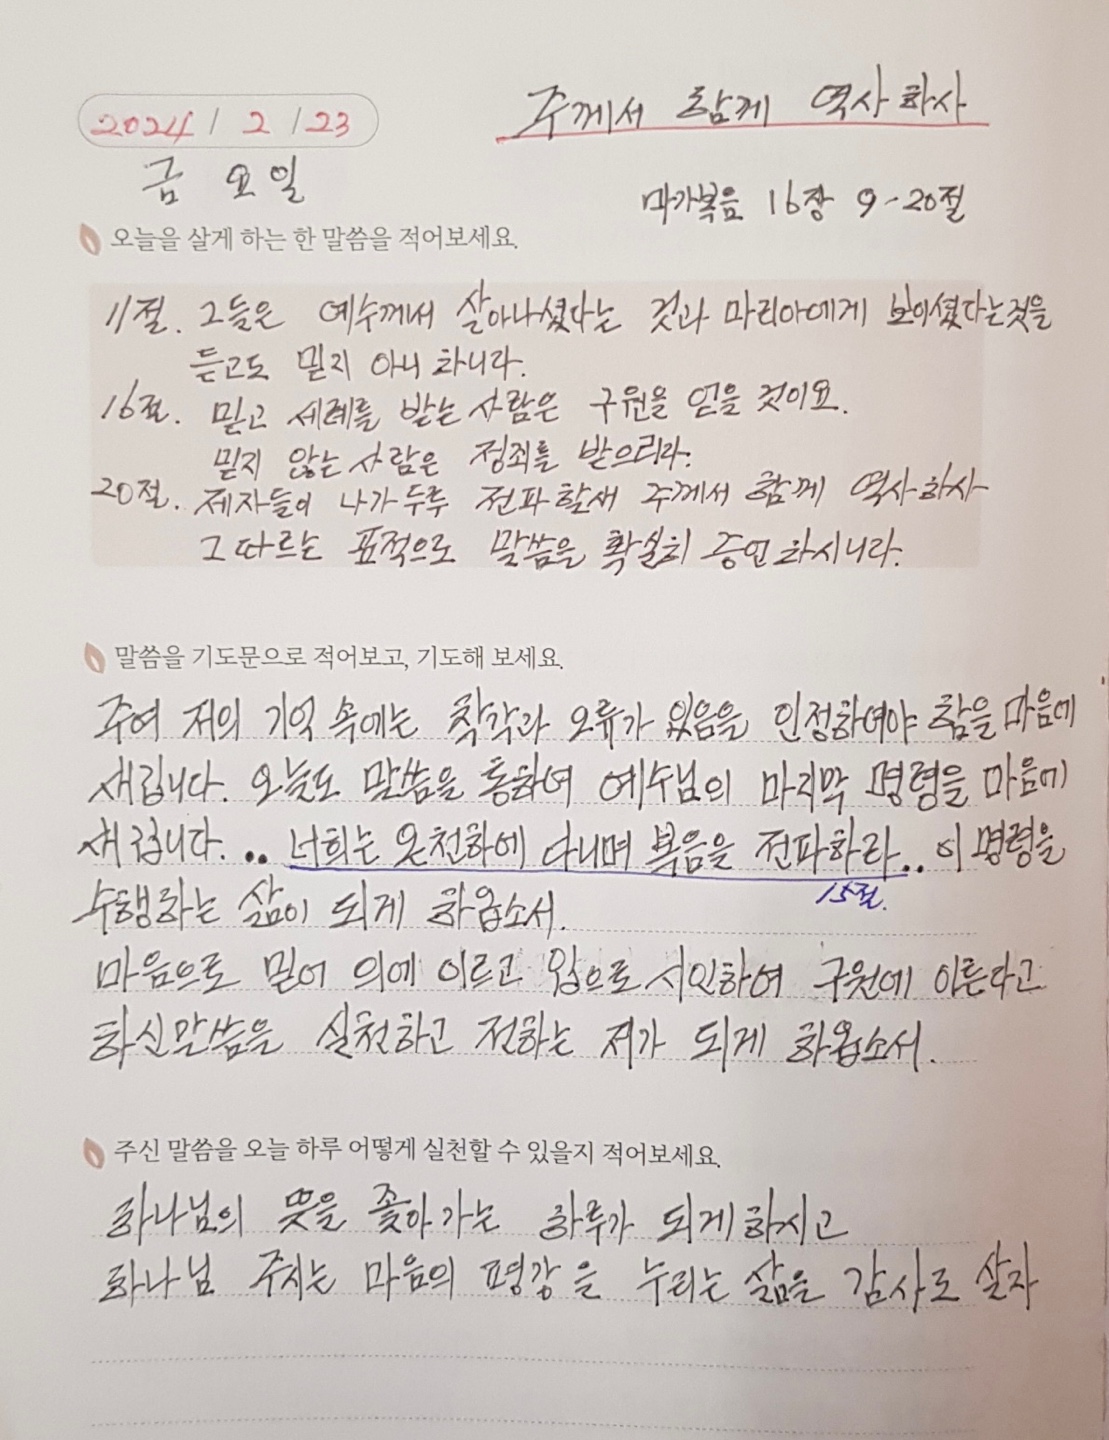 2024 / 2 / 23
주께서 함께 역사하사
금 요일
마가복음 16장 9-20절
오늘을 살게 하는 한 말씀을 적어보세요.
11절. 그들은 예수께서 살아나셨다는 것과 마리아에게 보이셨다는것을
듣고도 믿지 아니 하니라.
16절. 믿고 세례를 받는 사람은 구원을 얻을 것이요.
믿지 않는 사람은 정죄를 받으리라.
20절. 제자들이 나가 두루 전파할새 주께서 함께 역사하사
그 따르는 표적으로 말씀을 확실히 증언 하시니라.
말씀을 기도문으로 적어보고, 기도해 보세요.
주여 저의 기억 속에는 착각과 오류가 있음을 인정하여야 함을 마음에
새깁니다. 오늘도 말씀을 통하여 예수님의 마지막 명령을 마음에
새깁니다. •• 너희는 온천하에 다니며 복음을 전파하라.. 이 명령을
15절.
수행하는 삶이 되게 하옵소서.
마음으로 믿어 의에 이르고 입으로 시인하여 구원에 이른다고
하신말씀을 실천하고 전하는 저가 되게 하옵소서.
주신 말씀을 오늘 하루 어떻게 실천할 수 있을지 적어보세요.
하나님의 뜻을 좇아 가는 하루가 되게하시고
하나님 주시는 마음의 평강을 누리는 삶을 감사로 살자